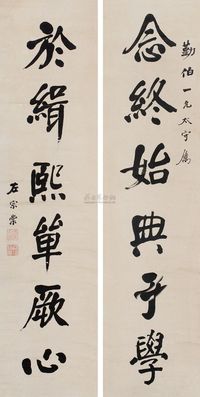 勤伯一兄太守属
念終始典于學
於緝熙單厥心
左宗棠